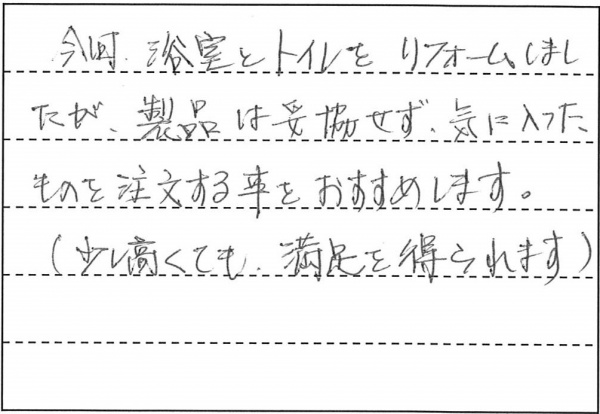 今回、浴室とトイレを リフォームしまし
たが、製品は妥協せず、気に入った
ものを注文する事をおすすめします。
(少し高くても、満足を得られます)